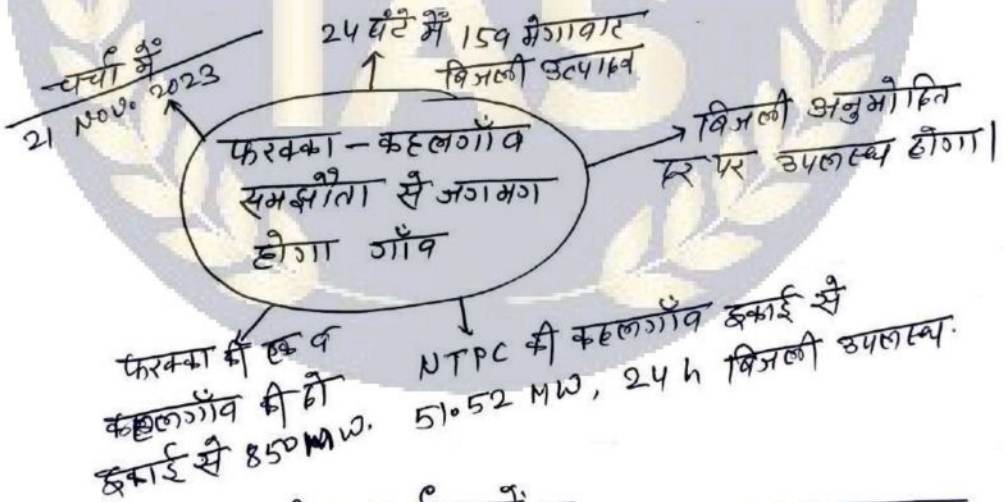 चर्चा में
21 NOV. 2023
24 घंटे में 159 मेगावाट
बिजली उत्पादन
फरक्का - कहलगाँव
समझौता से जगमग
होगा गाँव
बिजली अनुमोदित
दर पर उपलब्ध होगा।
फरक्का की एक व
कहलगाँव की दो
इकाई से 850 MW.
NTPC की कहलगाँव इकाई से
51.52 MW, 24 h बिजली उपलब्ध.